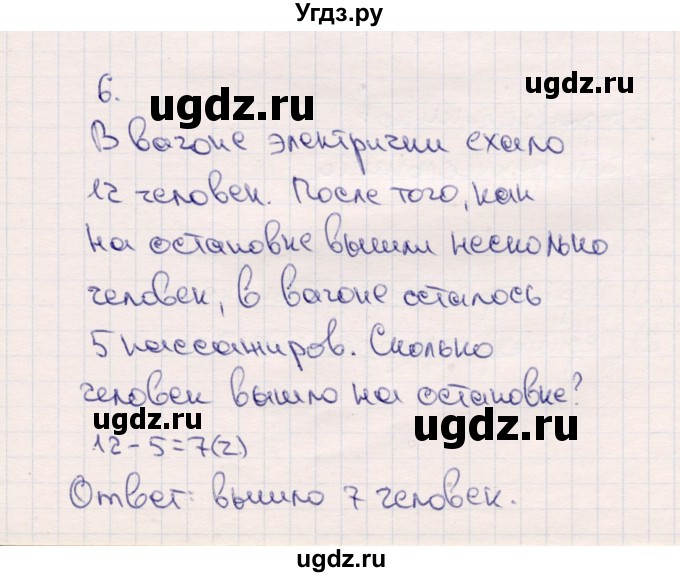 Угдз.ру
6.
ugdz.ru
В вагоне электрички ехало
12 человек. После того, как
на остановке вышли несколько
человек, в вагоне осталось
5 пассажиров. Сколько
человек вышло на остановке?
ugdz.ru
ugdz.ru
12-5=7(ч)
Ответ: вышло 7 человек.
ugdz.ru